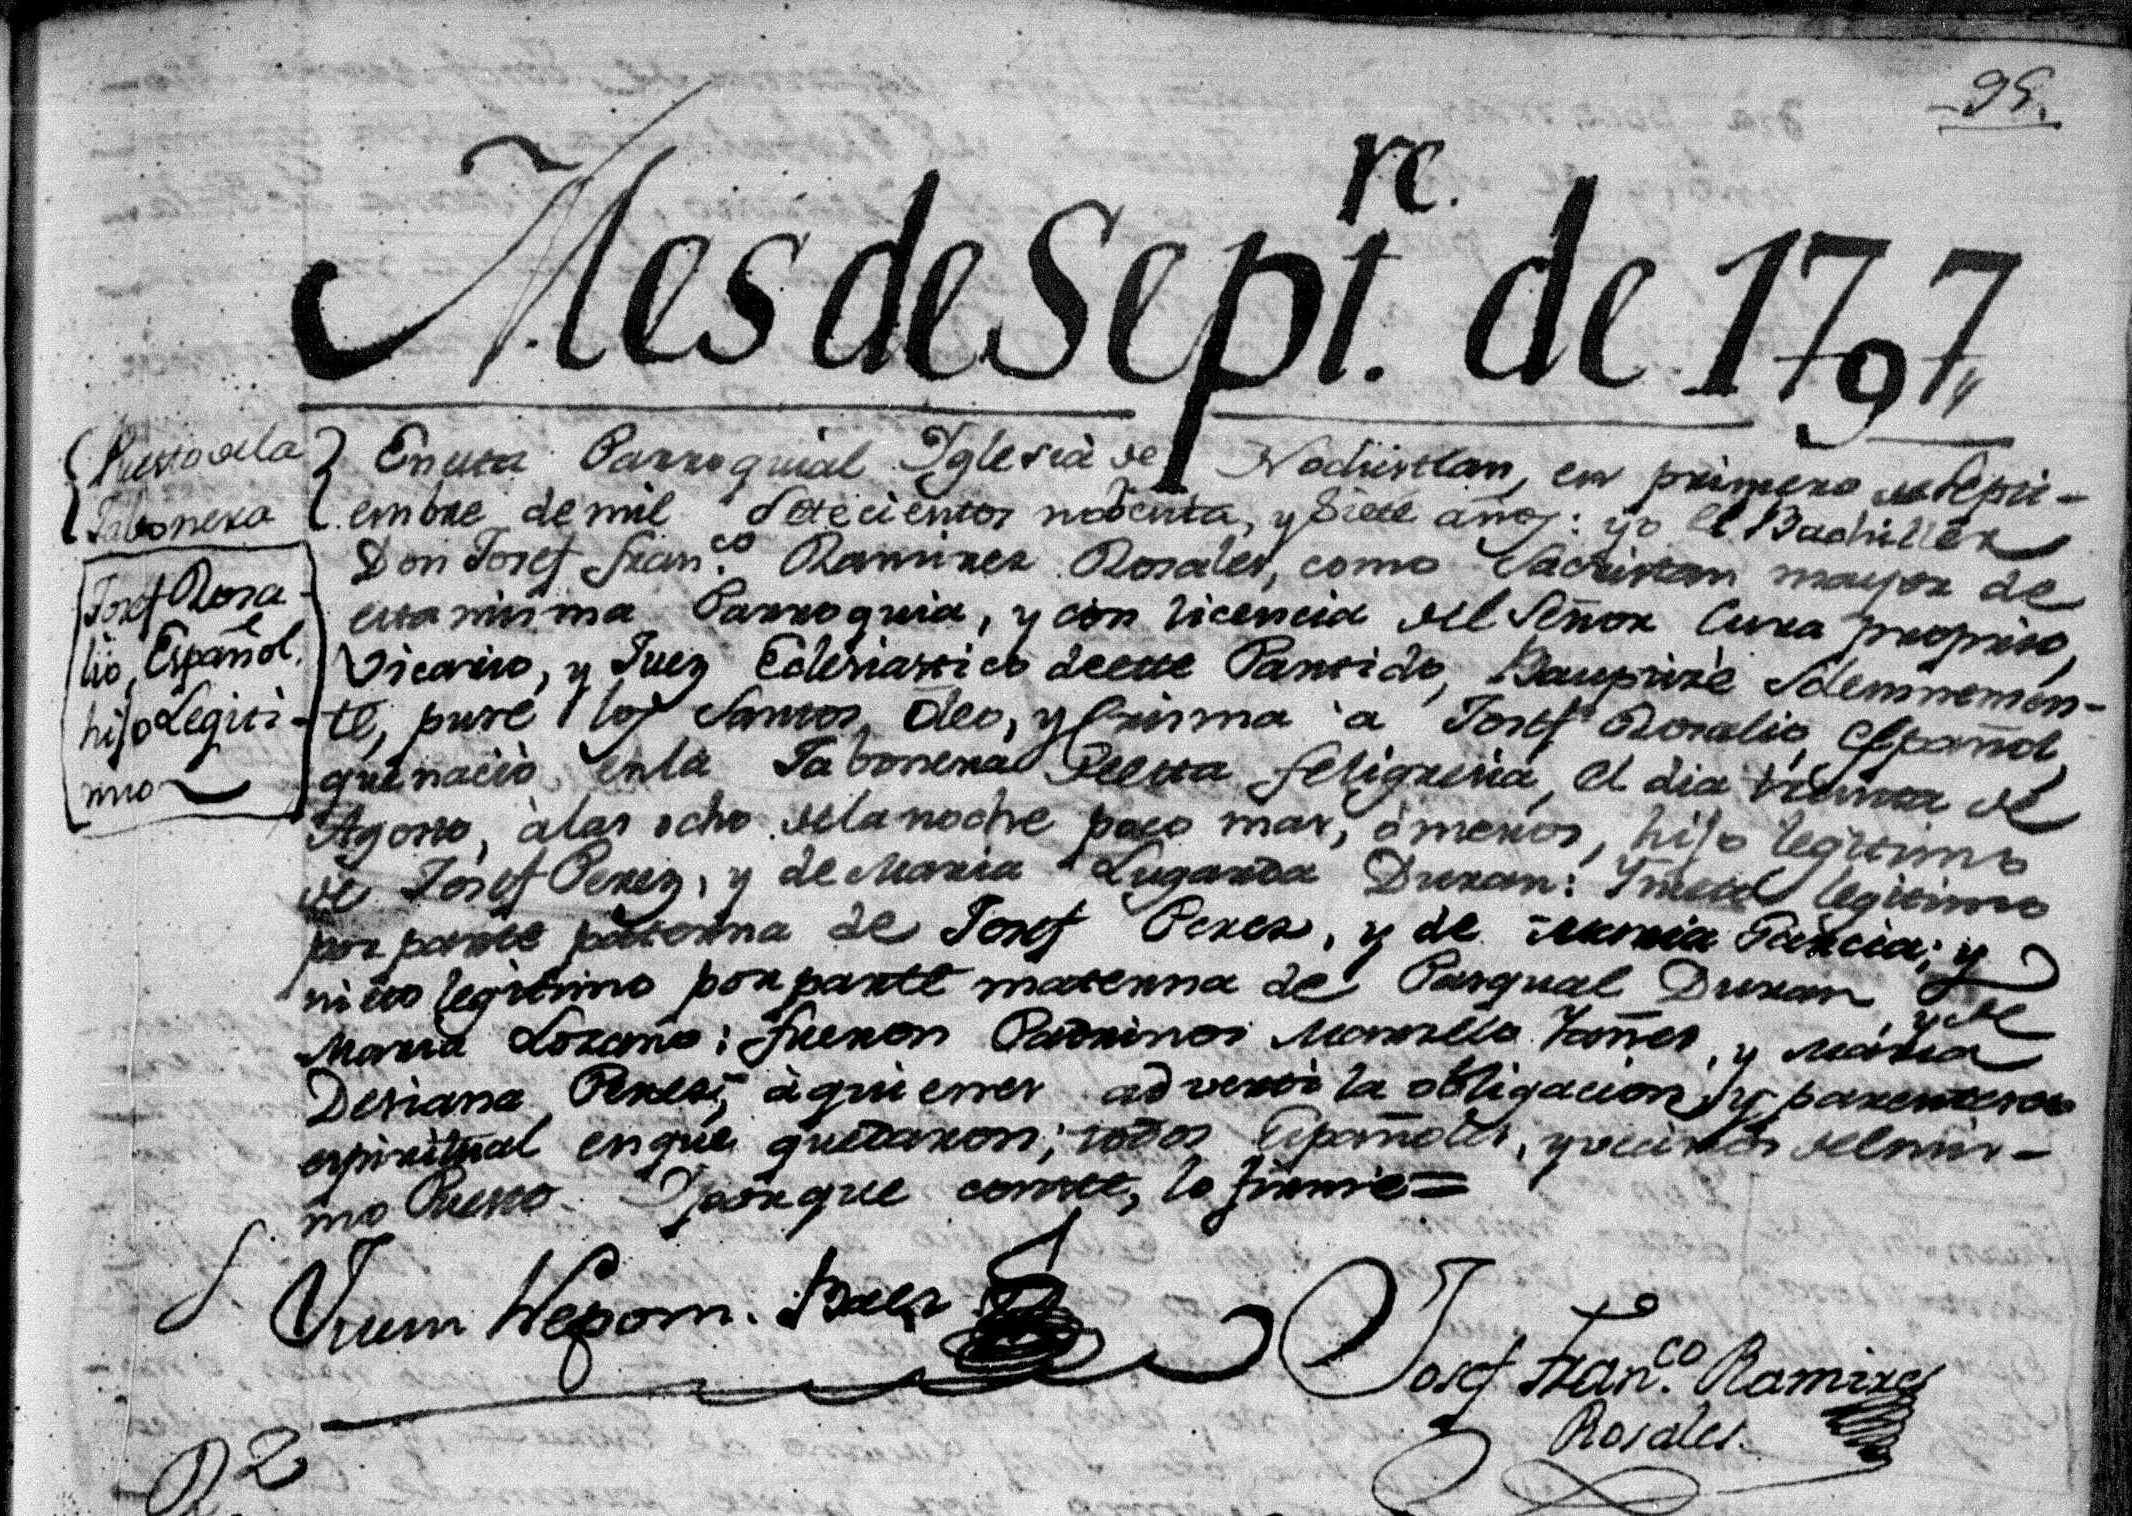 95.
Mes de Sept.re de 1797
Puesto de la
Tabonera
Josef Rosa-
lio, Español,
hijo Legiti-
mo
En esta Parroquial Iglesia de Nochistlan, en primero de Septi-
embre de mil setecientos nobenta, y Siete años: yo el Bachiller
Don Josef Fran.co Ramirez Rosales, como Sacristan mayor de
esta misma Parroquia, y con licencia del Señor Cura proprio,
Vicario, y Juez Eclesiastico de este Partido, Bauptizè solemnemen-
te, puse los Santos Oleo, y Crisma à Josef Rosalio, español,
que naciò en la Tabonera de esta feligresia, el dia treinta de
Agosto, à las ocho de la noche poco mas, ò menos, hijo legitimo
de Josef Perez, y de Maria Lugarda Duran: Nieto legitimo
por parte paterna de Josef Perez, y de Maria Garcia; y
nieto legitimo por parte materna de Pasqual Duran, y de
Maria Lozano: fueron Padrinos Marcelo Yañes, y Maria
Desiana Peres, à quienes advertì la obligacion, y parentesco
espiritual en que quedaron; todos Españoles, y vecinos del mis-
mo Puesto. Y porque conste, lo firmè =
Juan Nepom. Baez
Josef Fran.co Ramirez
Rosales.